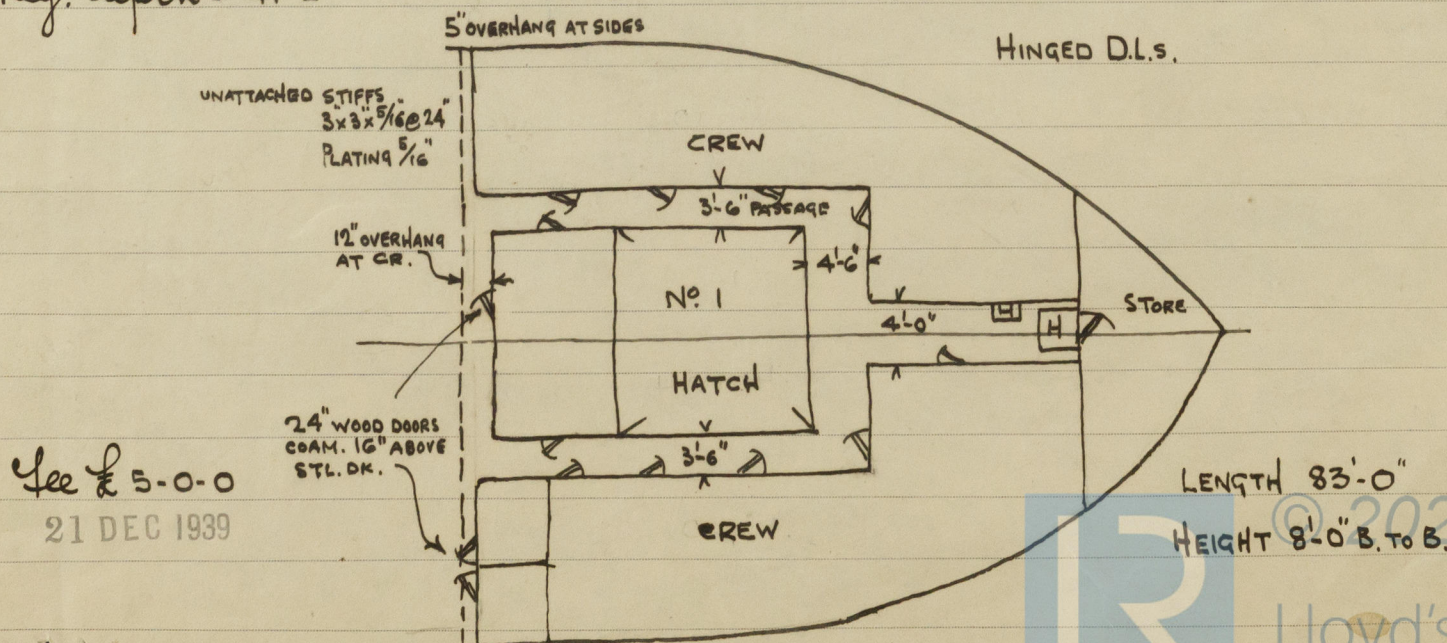 5" OVERHANG AT SIDES
HINGED D.L.s.
UNATTACHED STIFFS
3"x3"x5/16"@24"
PLATING 5/16"
CREW
3'-6" PASSAGE
12" OVERHANG
AT CR.
4'-6"
No. 1
4'-0"
H
H
STORE
HATCH
24" WOOD DOORS
COAM. 16" ABOVE
STL. DK.
3'-6"
Fee £ 5-0-0
21 DEC 1939
CREW
LENGTH 83'-0"
HEIGHT 8'-0" B. TO B.
© 202
Lloyd's